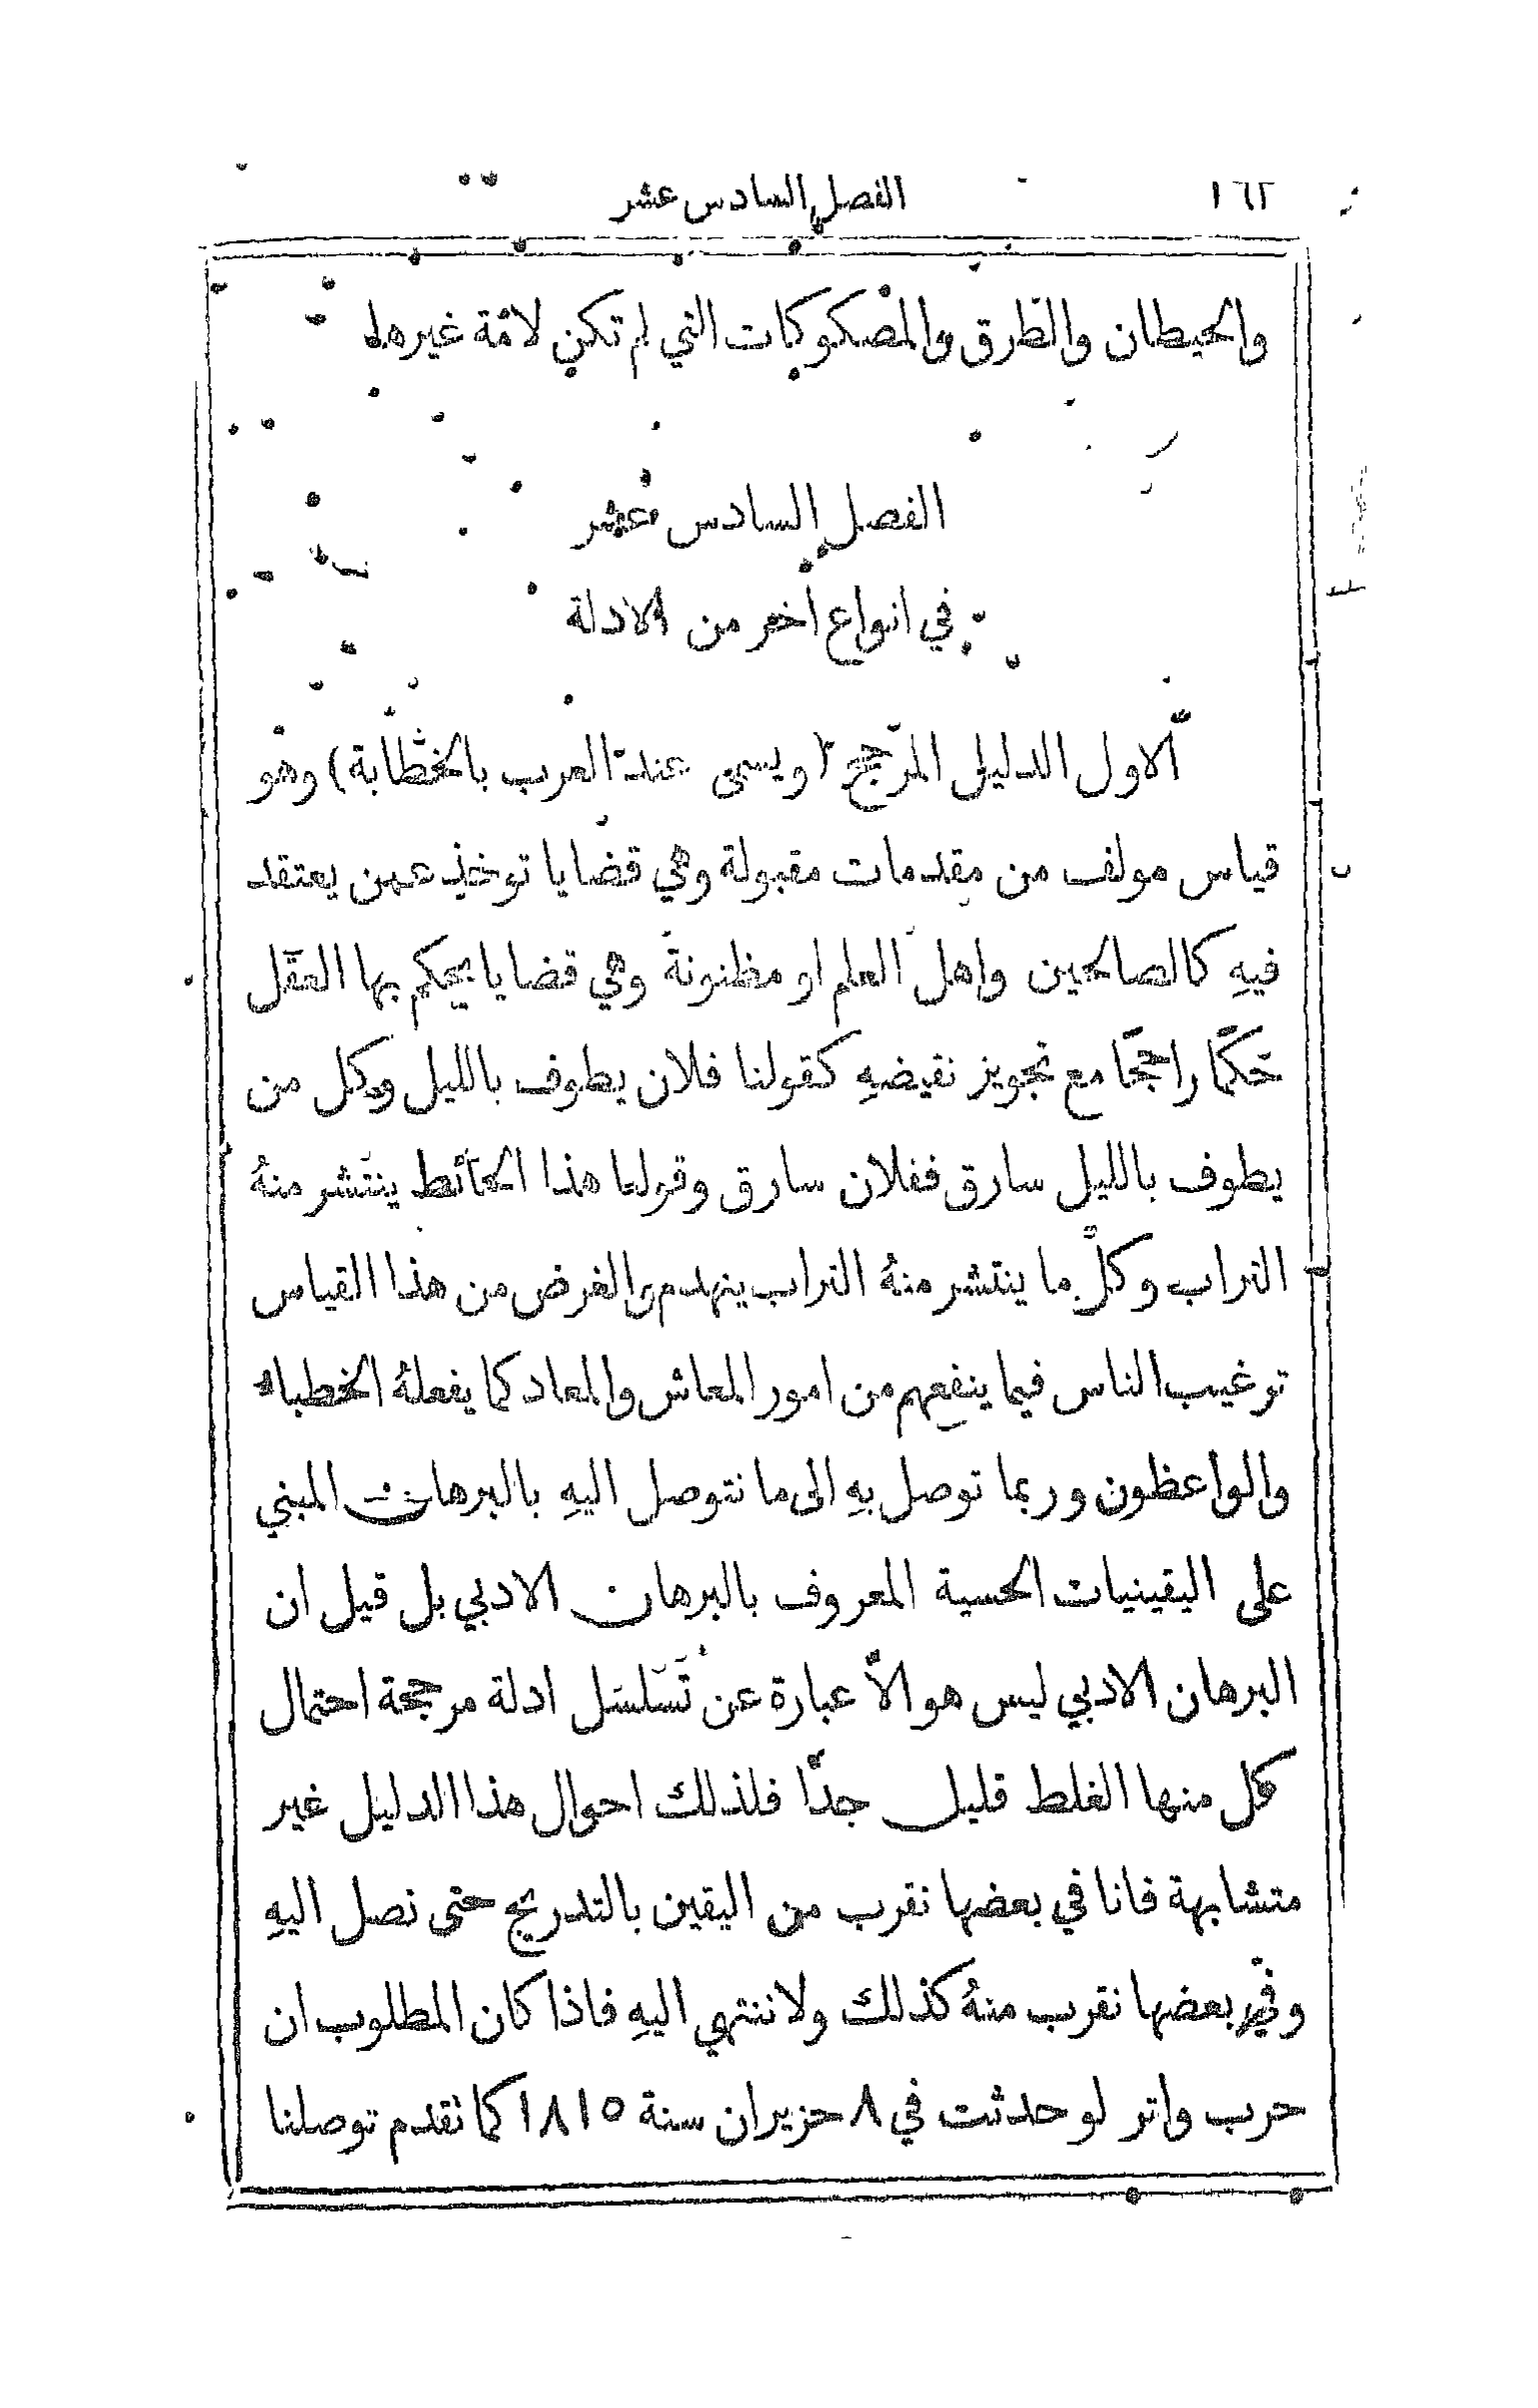 ١٦٢ الفصل السادس عشر
والحيطان والطرق والمصكوكات التي لم تكن لامّة غيرها
الفصل السادس عشر
في انواع أخر من الادلة
الاول الدليل المرجّح (ويسمى عند العرب بالخطابة) وهو
قياس مولف من مقدمات مقبولة وهي قضايا توخذ عمن يعتقد
فيهِ كالصالحين واهل العلم او مظنونة وهي قضايا يحكم بها العقل
حكمًا راجحًا مع تجويز نقيضهِ كقولنا فلان يطوف بالليل وكل من
يطوف بالليل سارق ففلان سارق وقولنا هذا الحائط ينتشر منهُ
التراب وكلّ ما ينتشر منهُ التراب ينهدم والغرض من هذا القياس
ترغيب الناس فيما ينفعهم من امور المعاش والمعاد كما يفعلهُ الخطباء
والواعظون وربما توصل بهِ الى ما نتوصل اليهِ بالبرهان المبني
على اليقينيات الحسية المعروف بالبرهان الادبي بل قيل ان
البرهان الادبي ليس هو الاّ عبارة عن تسلسل ادلة مرجحة احتمال
كل منها الغلط قليل جدًّا فلذلك احوال هذا الدليل غير
متشابهة فانا في بعضها نقرب من اليقين بالتدريج حتى نصل اليهِ
وفي بعضها نقرب منهُ كذلك ولا ننتهي اليهِ فاذا كان المطلوب ان
حرب واتر لو حدثت في ٨ حزيران سنة ١٨١٥ كما تقدم توصلنا